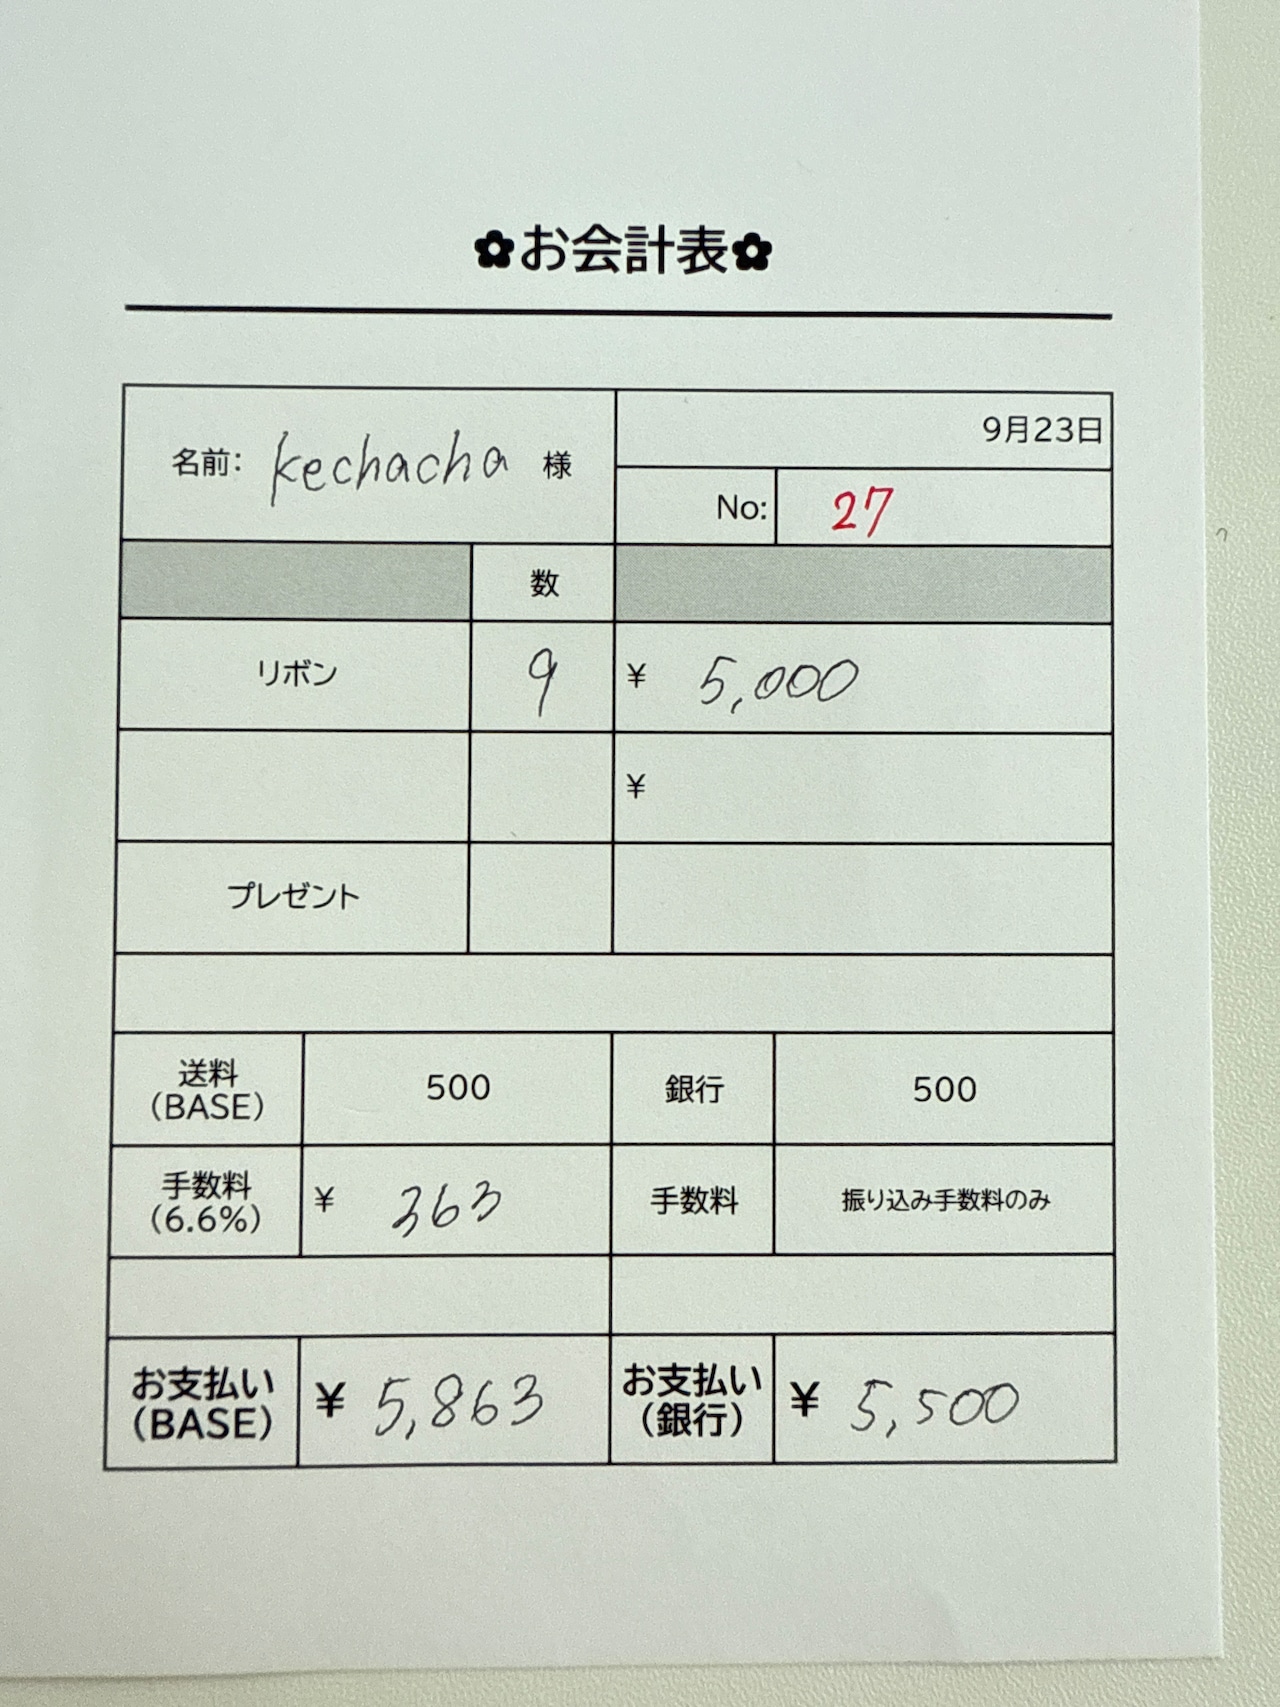 ✿お会計表✿
名前: kechacha 様
9月23日
No: 27
数
リボン 9 ¥ 5,000
¥
プレゼント
送料
(BASE) 500 銀行 500
手数料
(6.6%) ¥ 363 手数料 振り込み手数料のみ
お支払い
(BASE) ¥ 5,863 お支払い
(銀行) ¥ 5,500